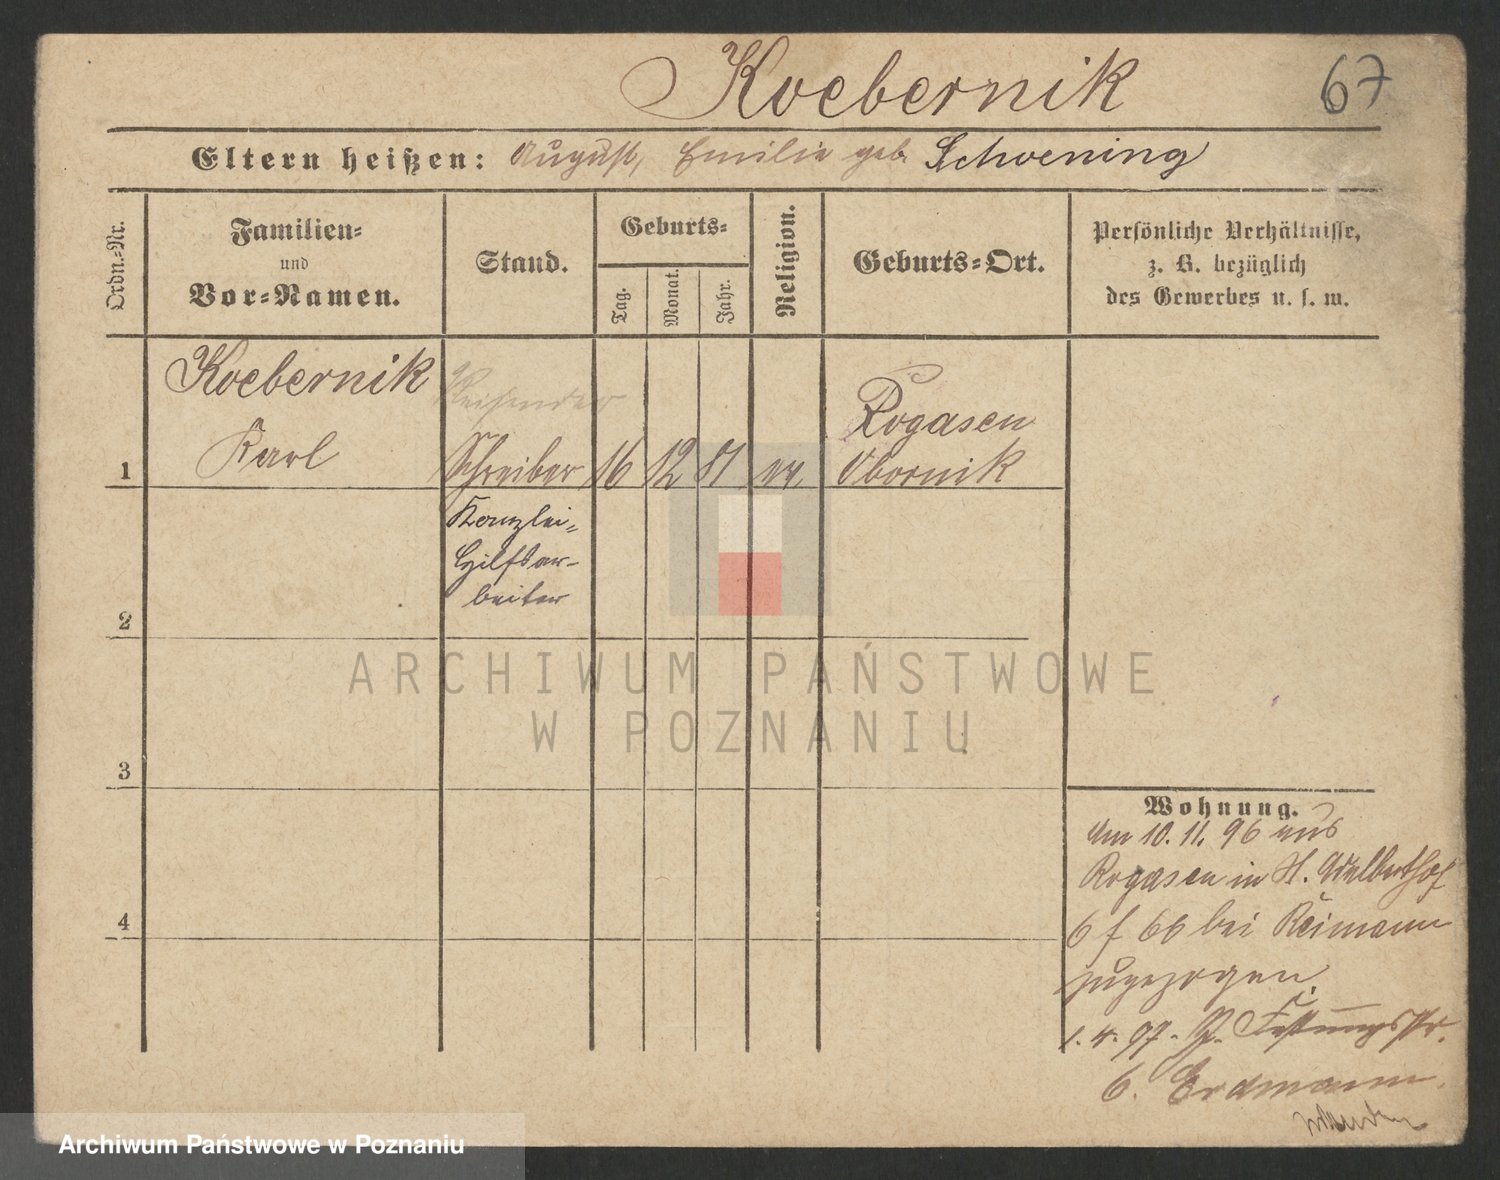 Koebernik
67
Eltern heißen: August, Emilie geb. Schoening
Ordn.-Nr.
Familien-
und
Vor-Namen.
Stand.
Geburts-
Tag.
Monat.
Jahr.
Religion.
Geburts-Ort.
Persönliche Verhältnisse,
z. B. bezüglich
des Gewerbes u. s. w.
Koebernik
Reisender
Rogasen
1
Karl
Schreiber
16
12
81
ev.
Obornik
Kanzlei-
Hilfsar-
beiter
2
3
4
ARCHIWUM PAŃSTWOWE
W POZNANIU
Wohnung.
Am 10. 11. 96 aus
Rogasen in St. Adalberthof
6 f 66 bei Reimann
zugezogen.
1. 4. 97. Festungsstr.
6. Erdmann.
Archiwum Państwowe w Poznaniu